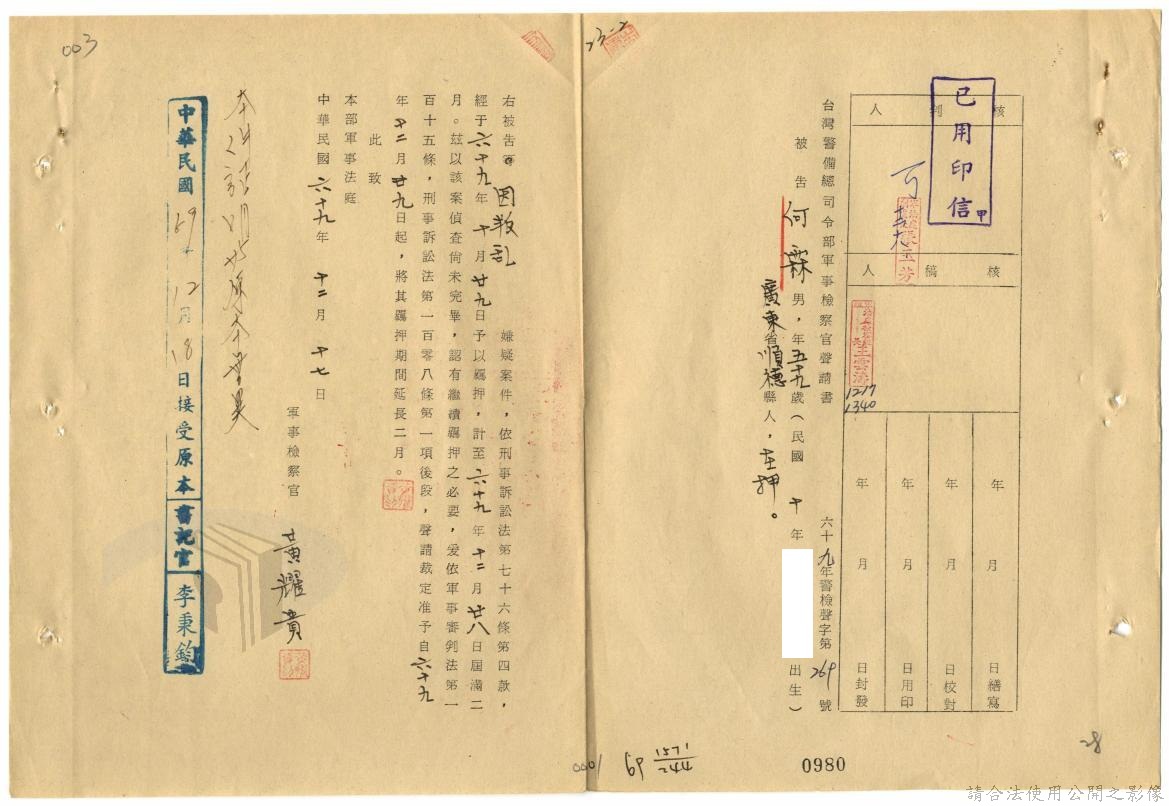 核判人
已用印信
甲
可
核稿人
12.17
1340
年 月 日繕寫
年 月 日校對
年 月 日用印
年 月 日封發
台灣警備總司令部軍事檢察官聲請書 六十九年警檢聲字第269號
被告何霖男,年五十九歲(民國十年 出生)
廣東省順德縣人,在押。
右被告因叛乱嫌疑案件,依刑事訴訟法第七十六條第四款,
經于六十九年十月廿九日予以羈押,計至六十九年十二月廿八日屆滿二
月。玆以該案偵查尙未完畢,認有繼續羈押之必要,爰依軍事審判法第一
百十五條,刑事訴訟法第一百零八條第一項後段,聲請裁定准予自六十九
年十二月廿九日起,將其羈押期間延長二月。
此致
本部軍事法庭
中華民國六十九年十二月十七日
軍事檢察官 黃耀貴
中華民國69年12月18日接受原本書記官李秉鈞
003
23-2
28
0001
69 1571/244
0980
請合法使用公開之影像